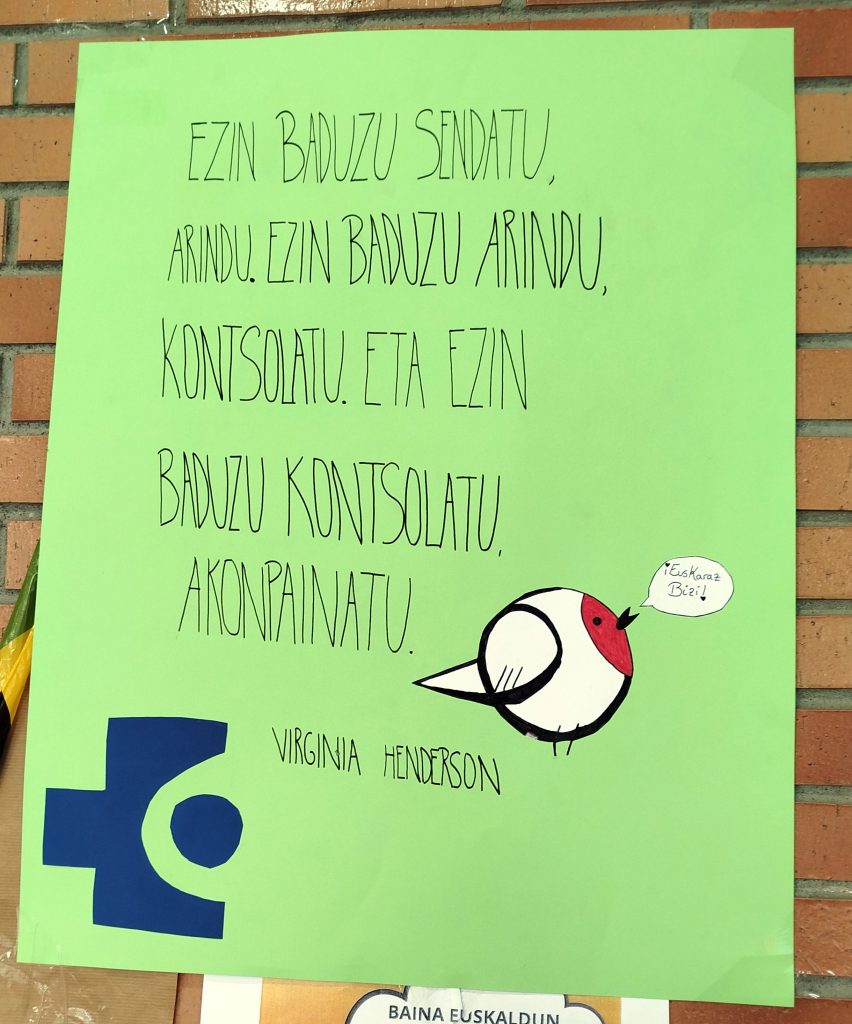 EZIN BADUZU SENDATU,
ARINDU. EZIN BADUZU ARINDU,
KONTSOLATU. ETA EZIN
BADUZU KONTSOLATU,
AKONPAINATU.
¡Euskaraz
Bizi!
VIRGINIA HENDERSON
BAINA EUSKALDUN